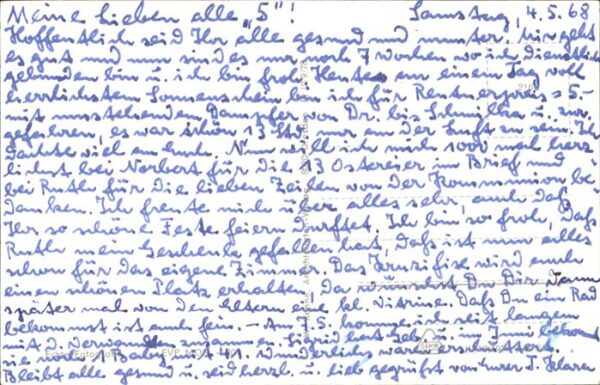 Meine Lieben alle „5"! Samstag, 4.5.68
Hoffentlich seid Ihr alle gesund und munter, mir geht
es gut und nun sind es nur noch 7 Wochen wo ich dienstlich
gebunden bin u. ich bin froh. Heute an einem Tag voll
herrlichstem Sonnenschein bin ich für Rentnerpreis = 5.-
mit umstehenden Dampfer von Dr. bis Schmilka u. zur.
gefahren, es war schön 13 Std. nur an der Luft zu sein. Ich
dachte viel an Euch. Nun will ich mich 100 x mal herz-
lichst bei Norbert für die 13 Ostereier im Brief und
bei Ruth für die lieben Zeilen von der Kommunion be-
danken. Ich freute mich über alles sehr, auch daß
Ihr so schöne Feste feiern durftet. Ich bin so froh, daß
Ruth mein Geschenk gefallen hat, daß ist nun alles
schon für das eigene Zimmer. Das Kruzifix wird auch
einen schönen Platz erhalten. Da wünschst Du Dir dann
später mal von den Eltern eine kl. Vitrine. Daß Du ein Rad
bekommst ist auch fein. - Am 5. komme ich seit langem
mit d. Verwandten zusammen. Sigrid hat geb. u. im Juni bekommt
sie ihr Baby,
Bleibt alle gesund u. seid herzl. u. lieb gegrüßt von Eurer T. Klara